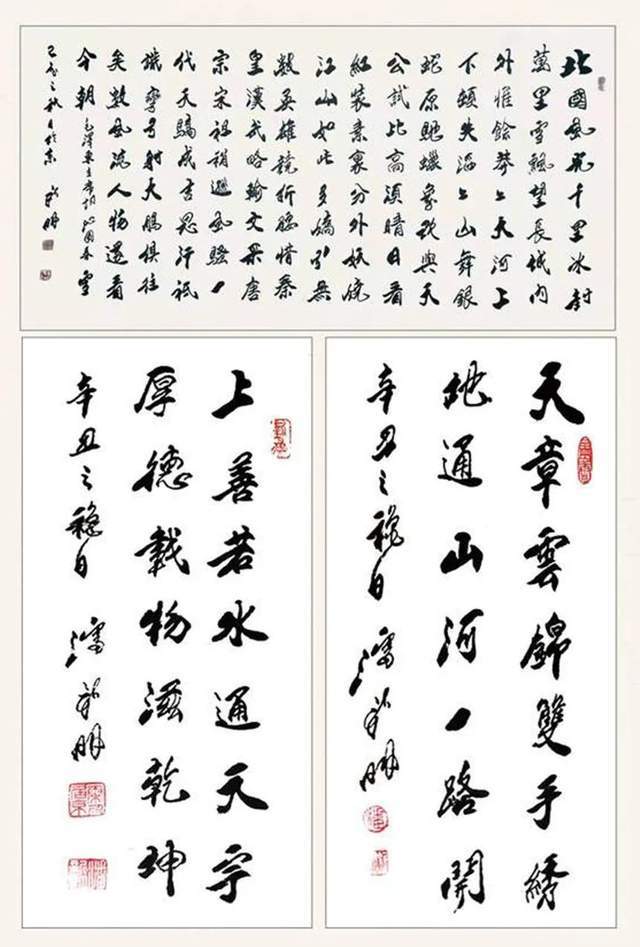 北國風光千里冰封
萬里雪飄望長城內
外惟餘莽〻大河上
下頓失滔〻山舞銀
蛇原馳蠟象欲與天
公試比高須晴日看
紅裝素裹分外妖嬈
江山如此多嬌引無
數英雄競折腰惜秦
皇漢武略輸文采唐
宗宋祖稍遜風騷一
代天驕成吉思汗祇
識彎弓射大鵰俱往
矣數風流人物還看
今朝 毛澤東主席詞沁園春雪
己亥之秋月於京
天章雲錦雙手綉
地通山河一路開
辛丑之穐日 潘
上善若水通天宇
厚德載物滋乾坤
辛丑之穐日 潘